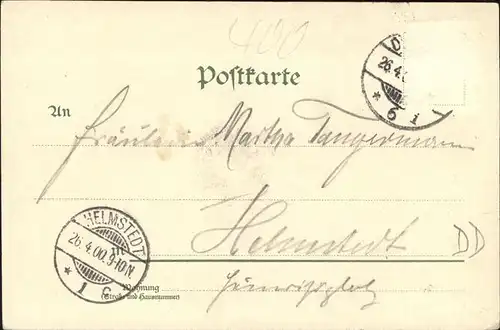 400
Postkarte
D
26.4.0
* 6 1
An
Fräulein Martha Tangermann
HELMSTEDT
26.4.00.9-10N.
* 1 c
Helmstedt
DD
Wohnung
(Straße und Hausnummer)